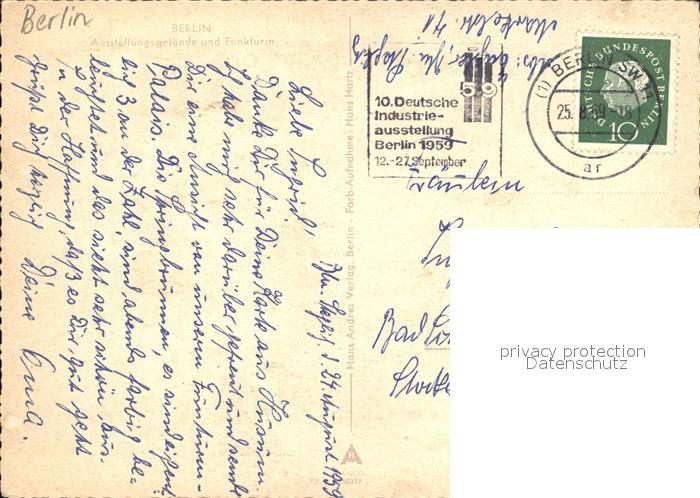 Berlin
BERLIN
Ausstellungsgelände und Funkturm
Bln. Steglitz, d. 24. August 1959
Liebe Ingrid!
Danke Dir für Deine Karte aus Husum.
Ich habe mich sehr darüber gefreut und sende
Dir eine Ansicht von unserm Funkturm-
Palais. Die Springbrunnen, es sind eigent-
lich 3 an der Zahl, sind abends farbig be-
leuchtet und das sieht sehr schön aus.
In der Hoffnung, daß es Dir gut geht
grüßt Dich herzlich Deine Oma.
Hans Andres Verlag, Berlin · Farb-Aufnahme: Hans Hartz
Abs:
Bln. Steglitz
10. Deutsche
Industrie-
ausstellung
Berlin 1959
12.-27. September
(1) BERLIN SW 11
25. 8. 59 -18
ar
DEUTSCHE BUNDESPOST BERLIN
10
Fräulein
Bad
privacy protection
Datenschutz